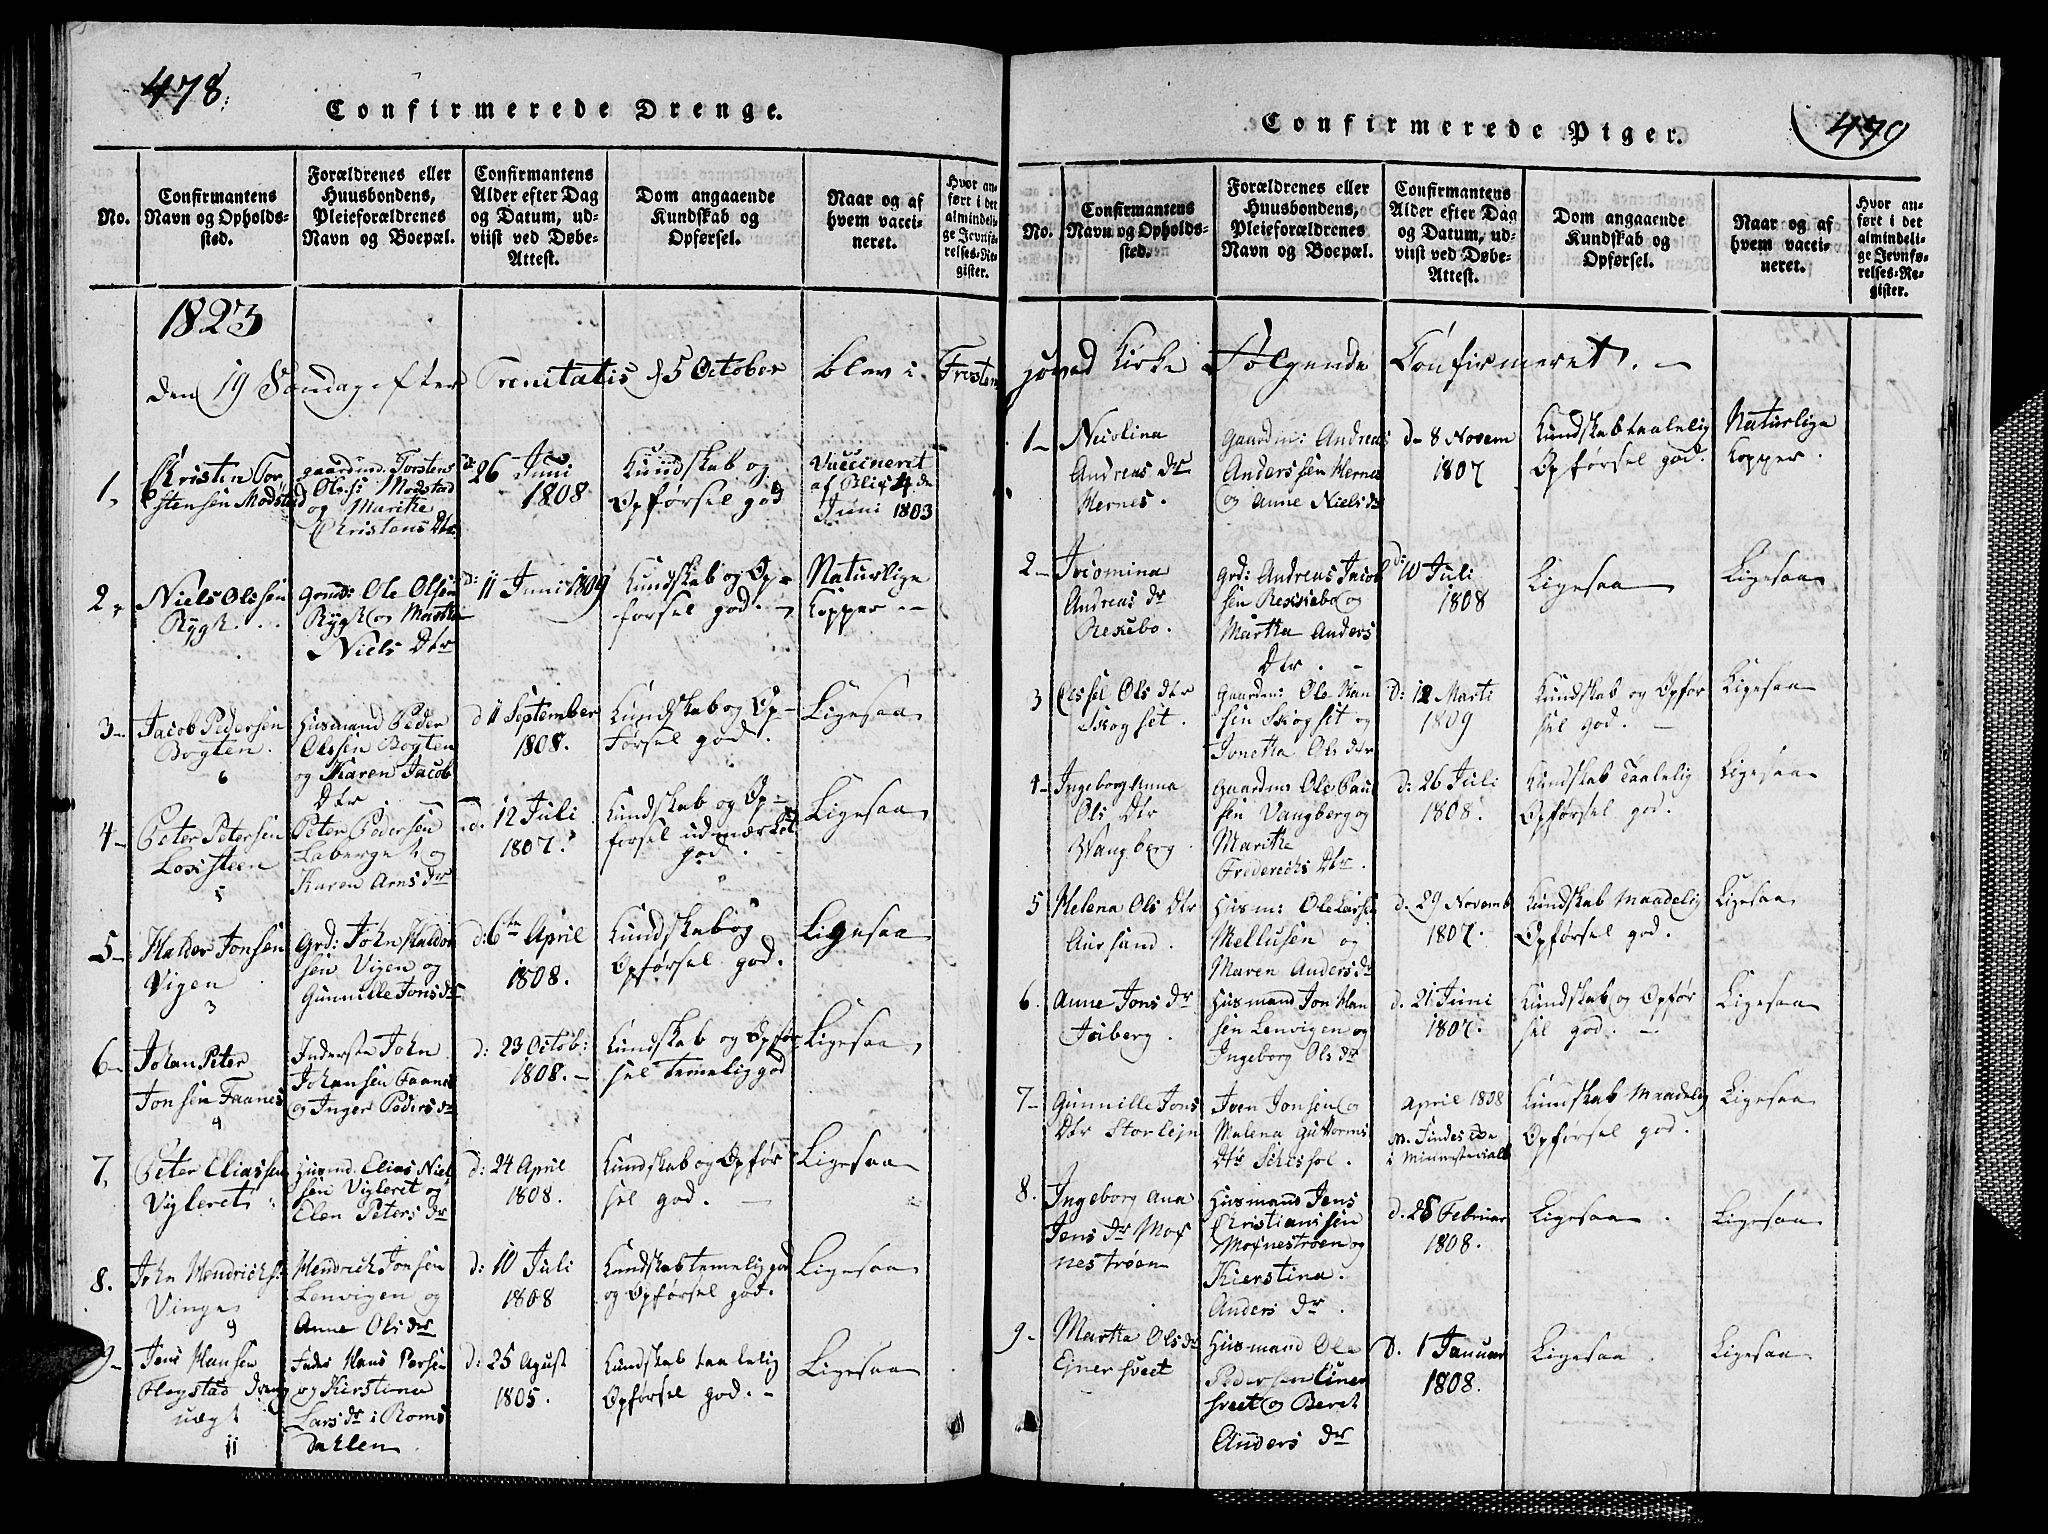 478.
Confirmerede Drenge.
No.
Confirmantens
Navn og Opholds-
sted.
Forældrenes eller
Huusbondens,
Pleieforældrenes
Navn og Boepæl.
Confirmantens
Alder efter Dag
og Datum, ud-
viist ved Døbe-
Attest.
Dom angaaende
Kundskab og
Opførsel.
Naar og af
hvem vacci-
neret.
Hvor an-
ført i det
almindeli-
ge Jevnfø-
relses-Re-
gister.
1823
den 19 Søndag efter Trenitatis d 5 October blev i Tresten
1,
Christen Tor
stensen Modstad
gaardmd. Torstens
Ols:s: Modstad
og Maritke
Christens Dtr
d: 26 Juni
1808
Kundskab og
Opførsel god
Vaccineret
af Blix 4 de
Juni 1803
2,
Niels Olssen
Rygh
Grmd: Ole Olsen
Rygh og Maritke
Niels Dtr
d: 11 Juni 1809
Kundskab og Op-
førsel god.
Naturlige
Kopper
3-
Jacob Pedersen
Bogten.
6
Husmand Peder
Olssen Bogten
og Karen Jacob
Dtr
d 11 September
1808.
Kundskab og Op-
førsel god.
Ligesaa
4-
Peter Petersen
Loxsteen
5
Peter Pedersen
Laberget og
Karen Arnsdr
d. 12 Juli
1807.
Kundskab og Op-
førsel udmærket
god.
Ligesaa
5-
Halder Jonsen
Vigen
3
Grd: John Haldor
sen Vigen og
Gunnille Jonsdr
d: 6te April
1808.
Kundskab og
Opførsel god.
Ligesaa
6-
Johan Peter
Jonsen Faanes
4
Inderste John
Johansen Faanes
og Inger Pedersdr
d: 23 Octob:
1808.-
Kundskab og Opfør
sel temelig god
Ligesaa
7,
Peter Eliassen
Vigleret
Husmd. Elias Niel
sen Vigleret og
Elen Peters dr
d: 24 April
1808.
Kundskab og Opfør
sel god.
Ligesaa
8.
John Hendrichsen
Vinge
9
Hendrich Jonsen
Lenvigen og
Anne Olsdr
d: 10 Juli
1808
Kundskab temelig god
og Opførsel god.
Ligesaa
9-
Jens Hansen
Flogstad dreng
11
Inder Hans Persen
og Kirstina
Larsdr i Roms
dahlen
d: 25 Agust
1805.
Kundskab taalelig
Opførsel god.-
Ligesaa
479
Confirmerede Piger.
No.
Confirmantens
Navn og Opholds-
sted.
Forældrenes eller
Huusbondens,
Pleieforældrenes
Navn og Boepæl.
Confirmantens
Alder efter Dag
og Datum, ud-
viist ved Døbe-
Attest.
Dom angaaende
Kundskab og
Opførsel.
Naar og af
hvem vacci-
neret.
Hvor an-
ført i det
almindeli-
ge Jevnfø-
relses-Re-
gister.
hoved Kirke Følgende Confirmeret.-
1-
Nicolina
Andreas dr
Hernes.
Gaardm: Andreas
Anderssen Hernes
og Anne Niels dr
d- 8 Novem
1807
Kundskab taalelig
Opførsel god.
Naturlige
Kopper.
2-
Jocomina
Andreas dr
Rekkebo.
Grd: Andreas Jacob
sen Rekkebo og
Martha Anders
Dtr.
D: 10 Juli
1808
Ligesaa
Ligesaa
3
Ols Dtr
Skogset.
Gaardm: Ole Han
sen Skogset og
Jonetha Ols dtr
D: 12 Marti
1809
Kundskab og Opfør
sel god.
Ligesaa
4-
Ingeborg Anna
Ols Dtr
Wangberg
Gaardm: Ole Paul
sen Vangberg og
Maritke
Frederichs Dtr.
d: 26 Juli
1808.
Kundskab Taalelig
Opførsel god.
Ligesaa
5
Helena Ols Dtr
Aursand.
Husm: Ole Larsen
Mellusen og
Maren Andersdr
d. 29 Novemb
1807.
Kundskab Maadelig
Opførsel god.
Ligesaa
6.
Anne Jons dr
Faberg.
Husmand Jon Han
sen Lenvigen og
Ingeborg Olsdr
d. 21 Juni
1807.
Kundskab og Opfør
sel god.-
Ligesaa
7-
Gunnille Jons
Dtr Storlejn
Iven Jonsen og
Malena Guttorms
Dtr
April 1808
M. Findes Ixe
i Minnesterialb
Kundskab Maadelig
Opførsel god.
Ligesaa
8.
Ingeborg Ana
Jens dr Mof
nestrøen
Husmand Jens
Christianssen
Mofnestrøen og
Kierstina.
Anders dr.
d. 28 Februar
1808.
Ligesaa.
Ligesaa
9-
Martha Olsdr
Ejnersveet
Husmand Ole
Pedersen Einer
sveet og Beret
Anders dr
D. 1 Januar
1808.
Ligesaa
Ligesaa